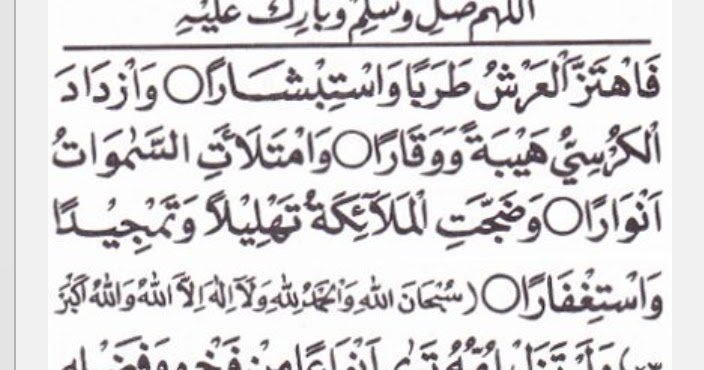 اللهم صل وسلم وبارك عليه
فَاهْتَزَّ الْعَرْشُ طَرَبًا وَاسْتِبْشَارًا ○ وَازْدَادَ
الْكُرْسِيُّ هَيْبَةً وَوَقَارًا ○ وَامْتَلَأَتِ السَّمٰوَاتُ
اَنْوَارًا ○ وَضَجَّتِ الْمَلَآئِكَةُ تَهْلِيْلًا وَتَمْجِيْدًا
وَاسْتِغْفَارًا ○ (سُبْحَانَ اللهِ وَالْحَمْدُ لِلّٰهِ وَلَآ اِلٰهَ اِلَّا اللهُ وَاللهُ اَكْبَرُ
٣×) وَلَمْ تَزَلْ اُمُّهُ تَرٰى اَنْوَاعًا مِنْ فَخْرِهِ وَفَضْلِهِ